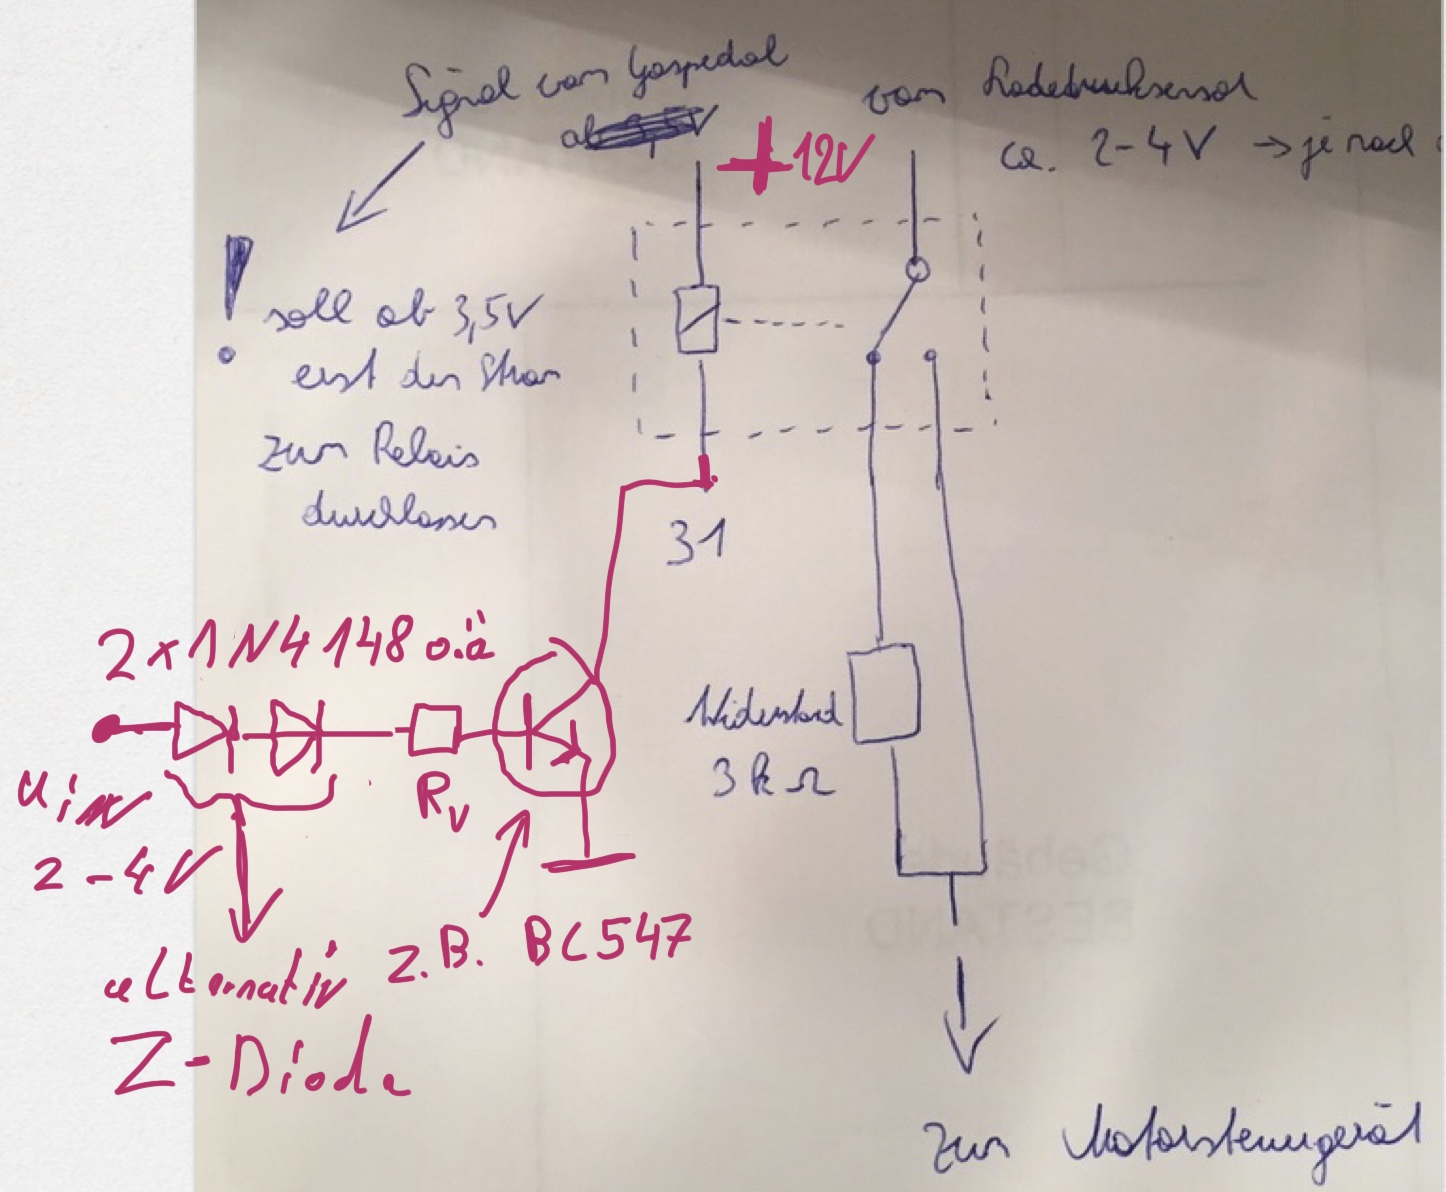 Signal vom Gaspedal
ab
+12V
vom Ladedrucksensor
ca. 2-4V → je nach
!
soll ab 3,5V
erst den Strom
zum Relais
durchlassen
31
2x1N4148 o.ä
Uin
2-4V
Rv
Widerstand
3kΩ
alternativ
Z-Diode
z.B. BC547
zum Motorsteuergerät